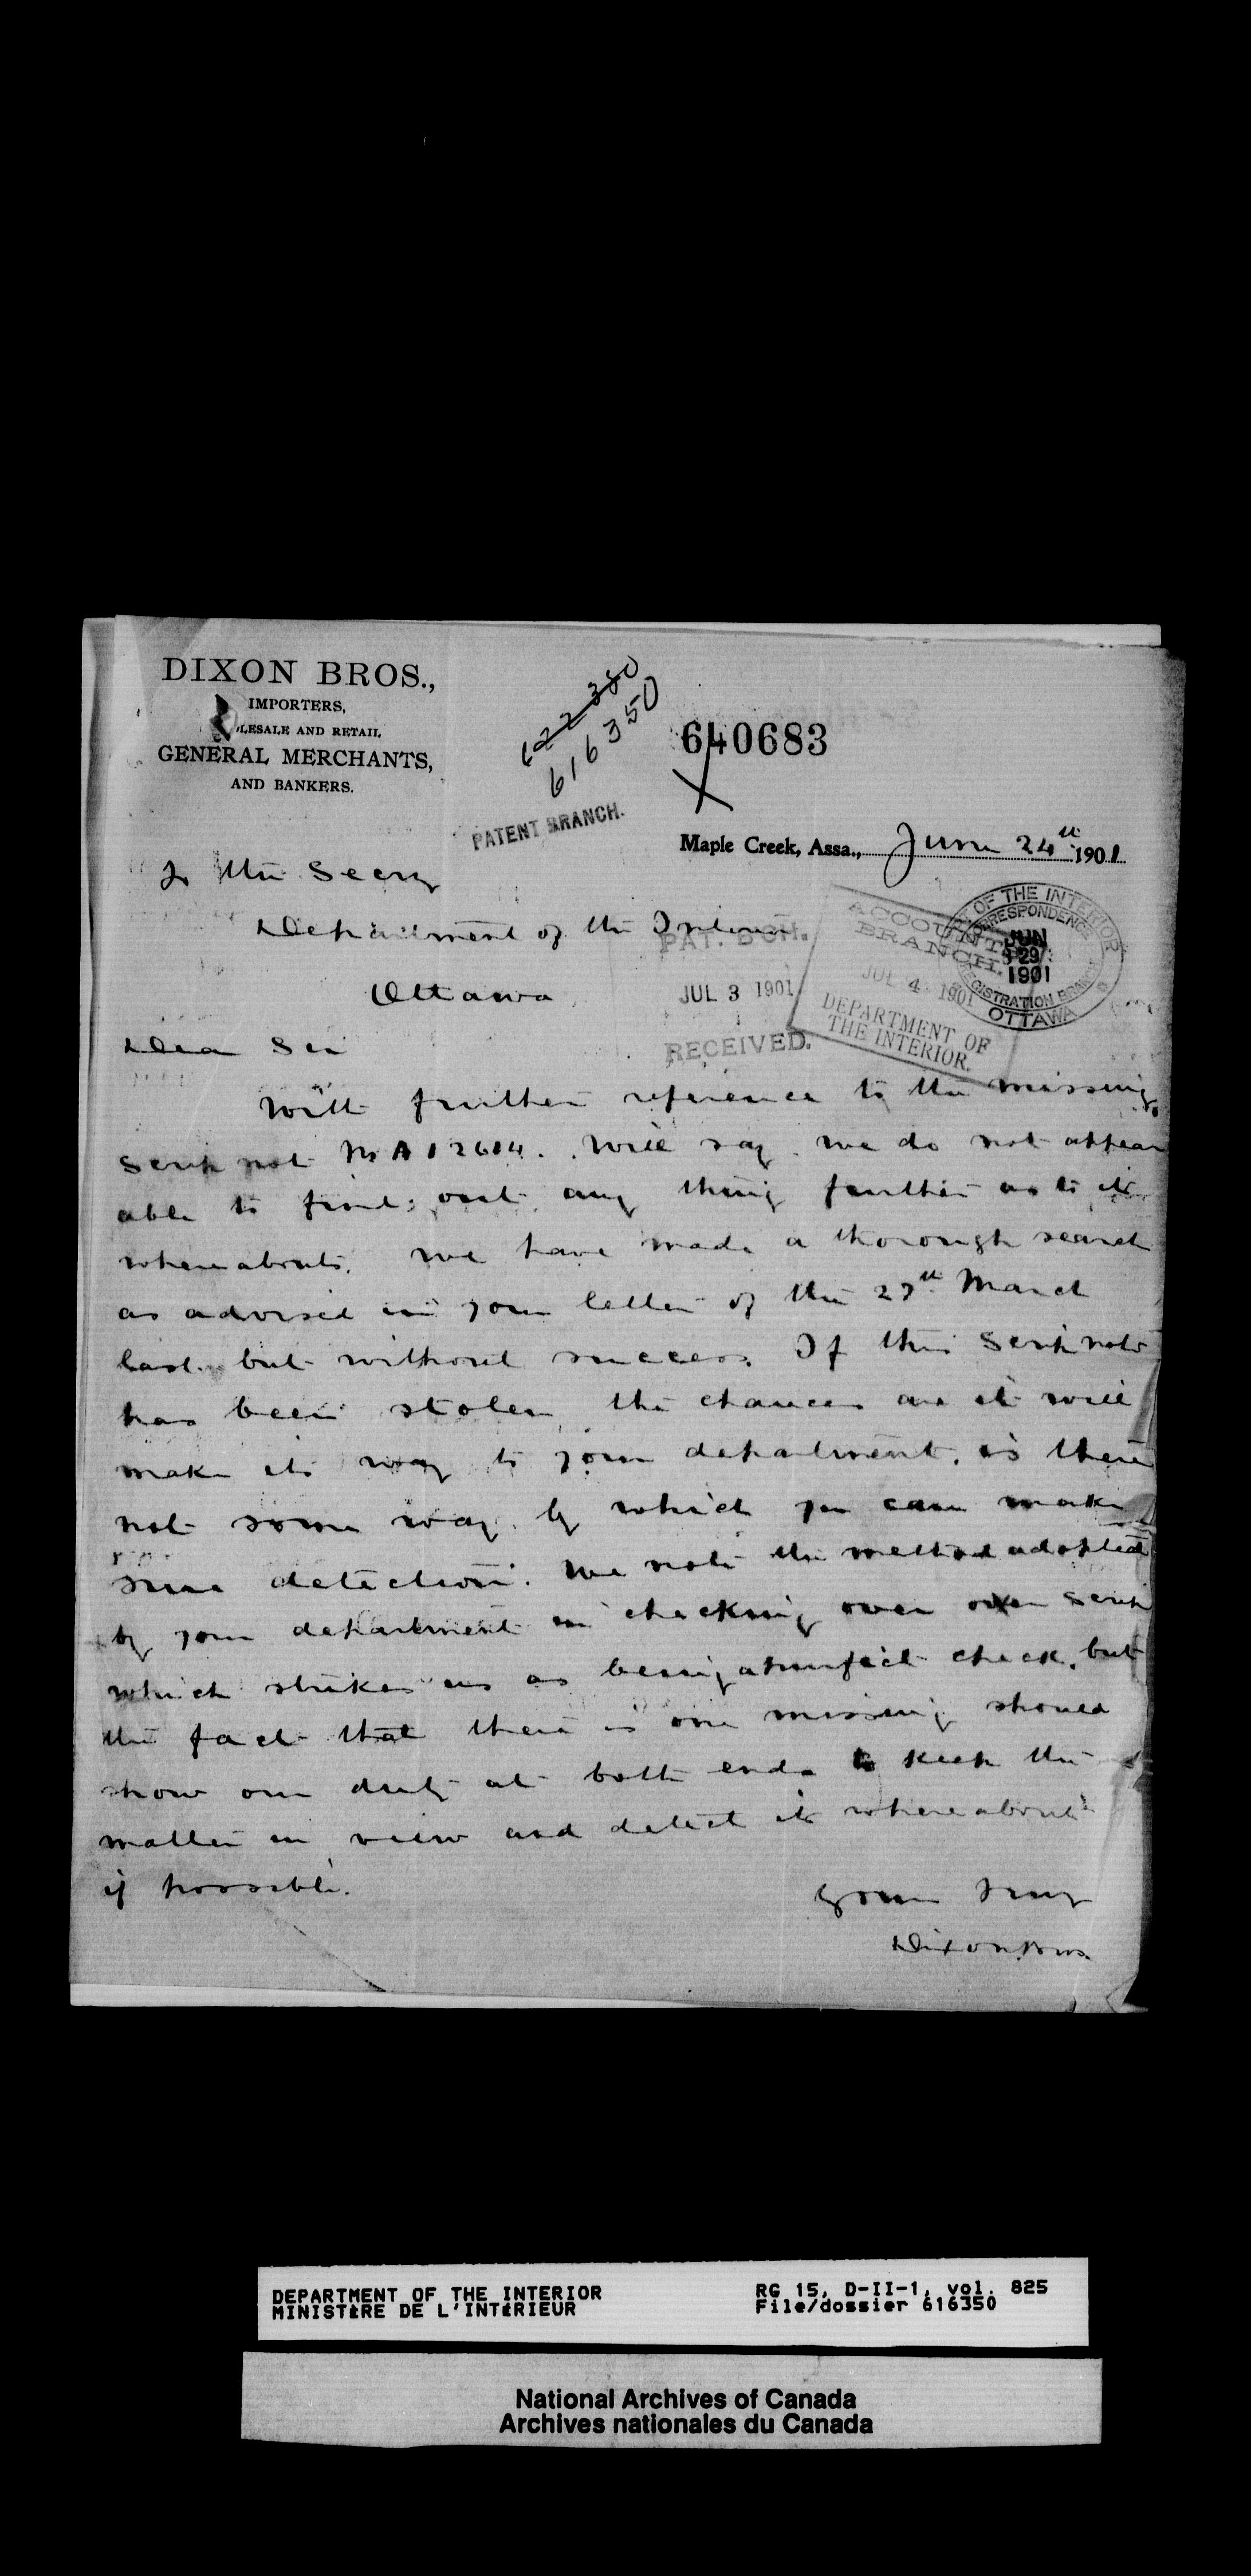 DIXON BROS.,
IMPORTERS,
LESALE AND RETAIL
GENERAL MERCHANTS,
AND BANKERS.
622380
616350
640683
PATENT BRANCH.
Maple Creek, Assa., June 24th 1901
To the Secry
Department of the Interior
Ottawa
PAT. BCH.
JUL 3 1901
RECEIVED.
ACCOUNTS
BRANCH.
JUL 4 1901
DEPARTMENT OF
THE INTERIOR.
OF THE INTERIOR
CORRESPONDENCE
JUN
29
1901
REGISTRATION BRANCH
OTTAWA
Dear Sir
With further reference to the missing
Scrip not No A 12614. Will say we do not appear
able to find out any thing further as to its
whereabouts. We have made a thorough search
as advised in your letter of the 27th March
last but without success. If this Scrip note
has been stolen the chances are it will
make its way to your department, is there
not some way by which you can make
sure detection. We note the method adopted
by your department in checking over Scrip
which strikes us as being a perfect check, but
the fact that there is one missing should
show our duty at both ends to keep the
matter in view and detect its whereabouts
if possible.
Yours Truly
Dixon Bros.
DEPARTMENT OF THE INTERIOR
MINISTÈRE DE L'INTÉRIEUR
RG 15, D-II-1, vol. 825
File/dossier 616350
National Archives of Canada
Archives nationales du Canada